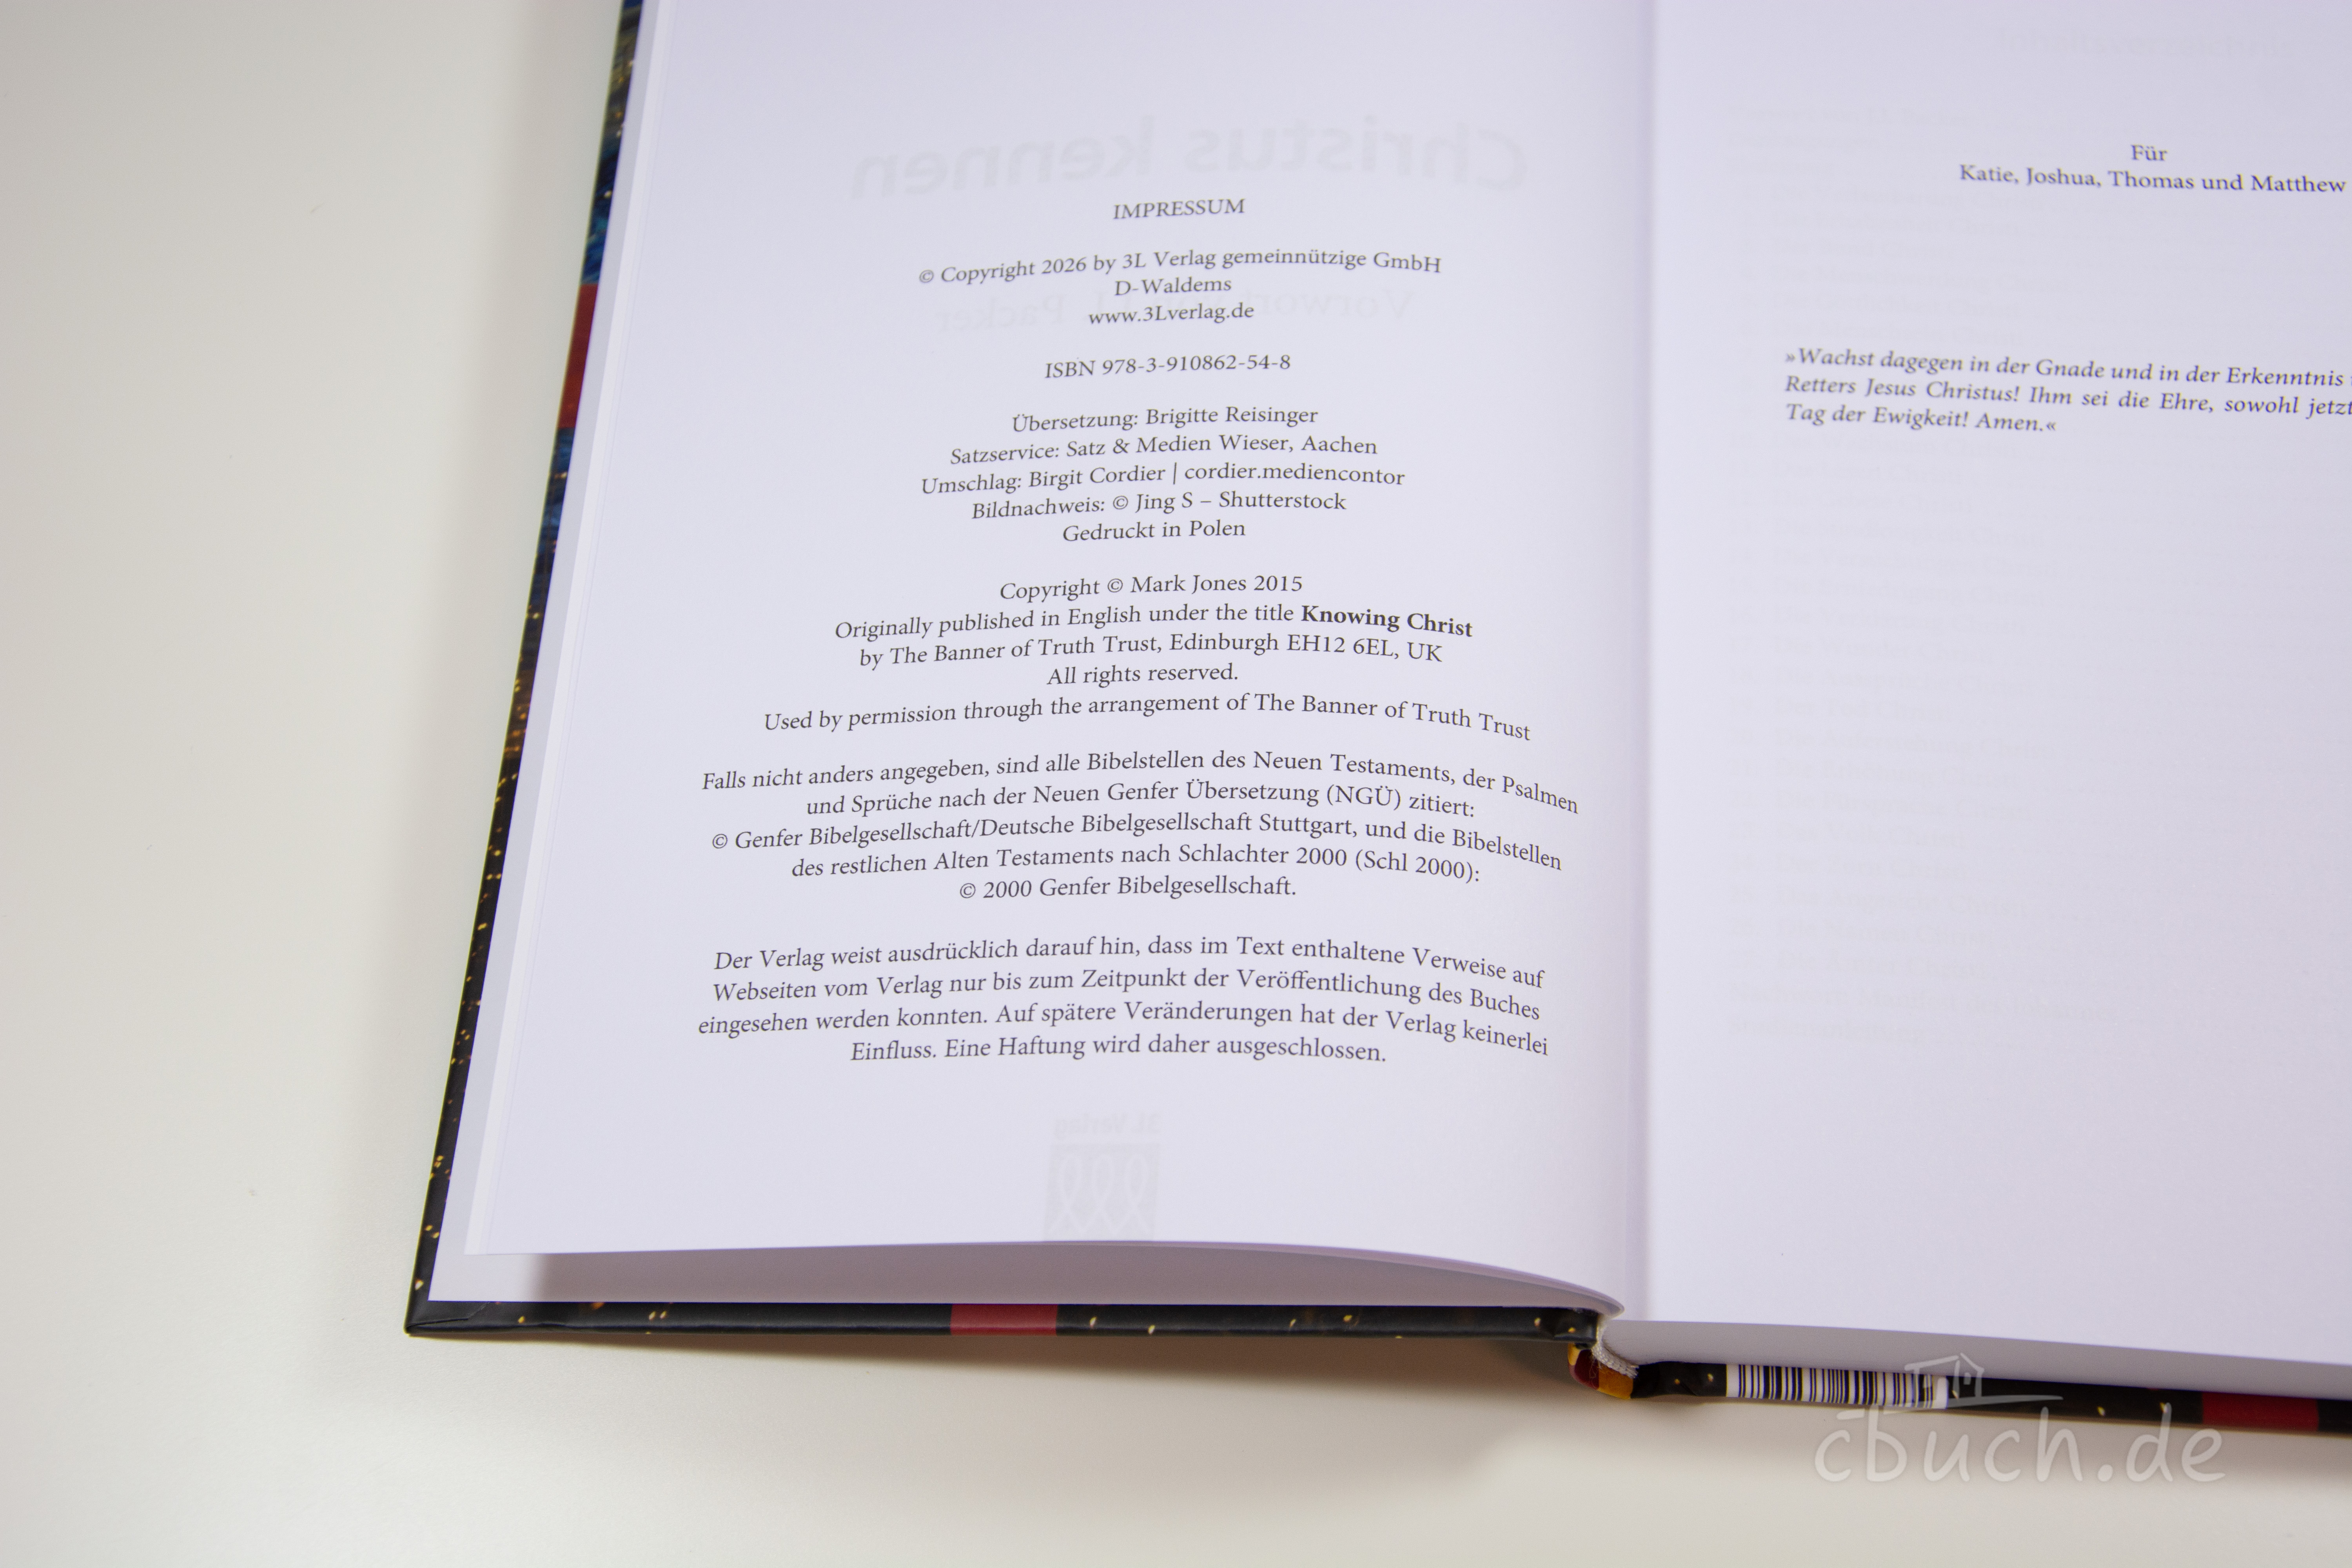 Christus kennen
IMPRESSUM
© Copyright 2026 by 3L Verlag gemeinnützige GmbH
D-Waldems
www.3Lverlag.de
Vorwort von J.I. Packer
ISBN 978-3-910862-54-8
Übersetzung: Brigitte Reisinger
Satzservice: Satz & Medien Wieser, Aachen
Umschlag: Birgit Cordier | cordier.mediencontor
Bildnachweis: © Jing S – Shutterstock
Gedruckt in Polen
Copyright © Mark Jones 2015
Originally published in English under the title Knowing Christ
by The Banner of Truth Trust, Edinburgh EH12 6EL, UK
All rights reserved.
Used by permission through the arrangement of The Banner of Truth Trust
Falls nicht anders angegeben, sind alle Bibelstellen des Neuen Testaments, der Psalmen
und Sprüche nach der Neuen Genfer Übersetzung (NGÜ) zitiert:
© Genfer Bibelgesellschaft/Deutsche Bibelgesellschaft Stuttgart, und die Bibelstellen
des restlichen Alten Testaments nach Schlachter 2000 (Schl 2000):
© 2000 Genfer Bibelgesellschaft.
Der Verlag weist ausdrücklich darauf hin, dass im Text enthaltene Verweise auf
Webseiten vom Verlag nur bis zum Zeitpunkt der Veröffentlichung des Buches
eingesehen werden konnten. Auf spätere Veränderungen hat der Verlag keinerlei
Einfluss. Eine Haftung wird daher ausgeschlossen.
3L Verlag
Für
Katie, Joshua, Thomas und Matthew
»Wachst dagegen in der Gnade und in der Erkenntnis
Retters Jesus Christus! Ihm sei die Ehre, sowohl jetzt
Tag der Ewigkeit! Amen.«
cbuch.de